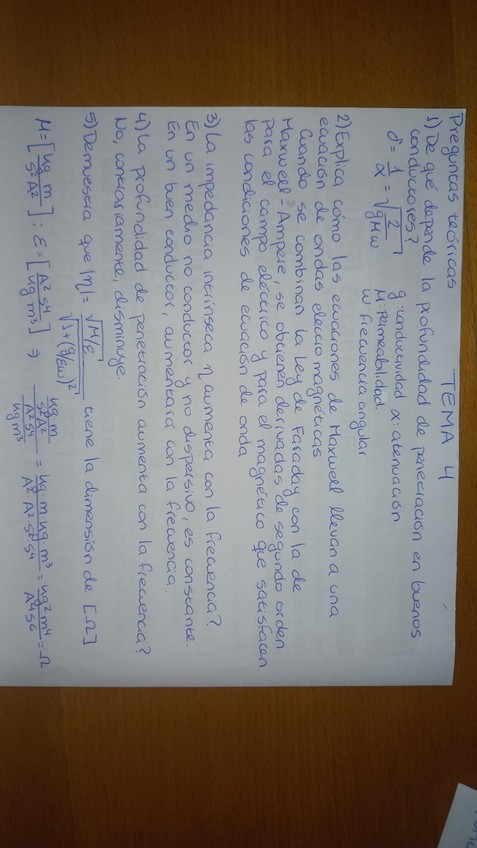 TEMA 4
Preguntas teóricas
1) De qué depende la profundidad de penetración en buenos
conductores?
δ = 1/α = √(2/(gμω)) g: conductividad α: atenuación
μ: permeabilidad.
ω: frecuencia angular
2) Explica cómo las ecuaciones de Maxwell llevan a una
ecuación de ondas electromagnéticas
Cuando se combinan la Ley de Faraday con la de
Maxwell Ampere, se obtienen derivadas de segundo orden
para el campo eléctrico y para el magnético que satisfacen
las condiciones de ecuación de onda
3) La impedancia intrínseca η aumenta con la frecuencia?
En un medio no conductor y no dispersivo, es constante.
En un buen conductor, aumentará con la frecuencia.
4) La profundidad de penetración aumenta con la frecuencia?
No, contrariamente, disminuye.
5) Demuestra que |η| = √(μ/ε) / √(1+(g/εω)²) tiene la dimensión de [Ω]
μ = [kg m / s² A²] ; ε = [A² s⁴ / kg · m³] ⇒ (kg m / s² A²) / (A² s⁴ / kg m³) = kg · m kg · m³ / A² A² · s² s⁴ = kg² m⁴ / A⁴ s⁶ = Ω